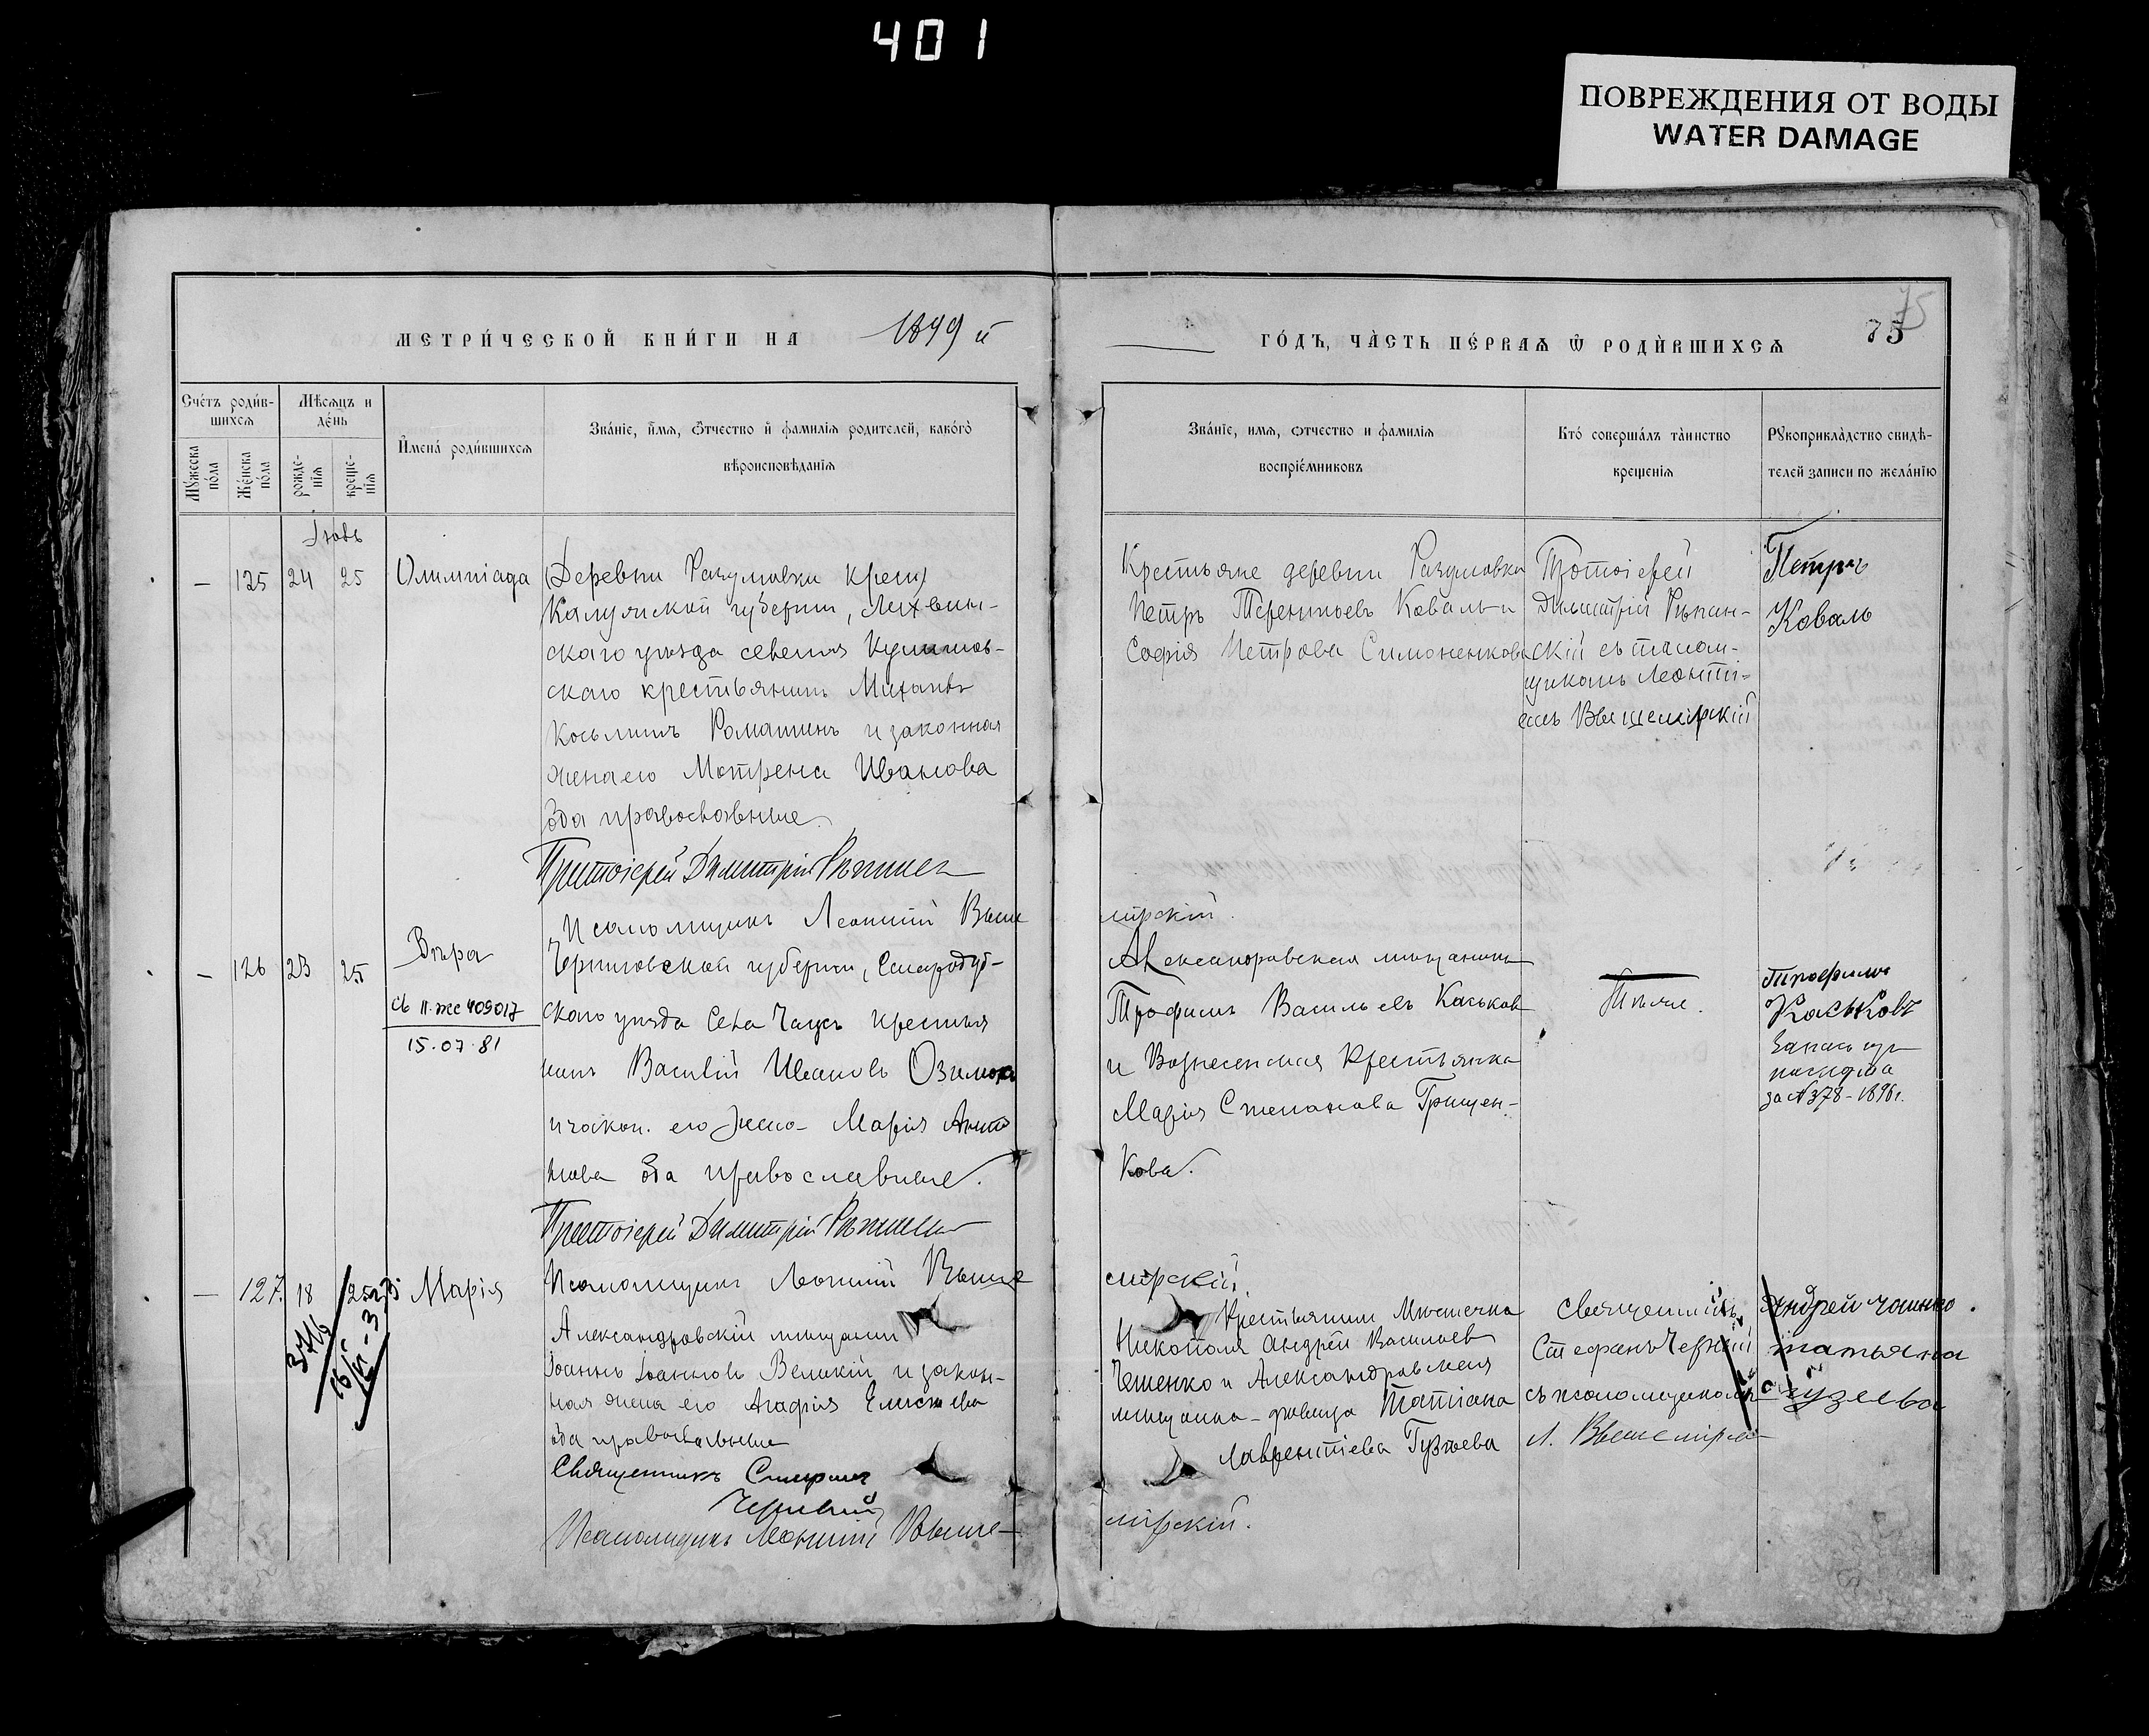 401
ПОВРЕЖДЕНИЯ ОТ ВОДЫ
WATER DAMAGE
75
МЕТРИ́ЧЕСКОЙ КНИ́ГИ НА 1899 й
ГО́ДЪ, ЧА̀СТЬ ПЕ́РВАѦ Ѿ РОДЍВШИХСѦ
75
Сче́тъ роди́в-
шихсѧ
Мѣсѧцъ и
де́нь
Мꙋ́жеска
по́ла
Же́нска
пола
рожде-
нїѧ
креще-
нїѧ
И̓мена̀ роди́вшихсѧ
Зва́нїе, и̓́мѧ, ѻ҆́тчество и҆ фамилїѧ родителей, како́гѡ
вѣроисповѣ́данїѧ
Зва́нїе, имѧ, ѻтчество и фамилїѧ
воспрїе́мниковъ
Кто́ соверша́лъ та̀инство
креще́нїѧ
Рꙋкоприкла̀дство свидѣ-
телей записи по жела́нїю
Іюнь
— 125 24 25
Олимпіада
Деревни Разумовки крещ
Калужской губерніи, Лихвин-
скаго уѣзда селенія
скаго крестьянинъ Михаилъ
Косьминъ Ромашинъ и законная
жена его Мотрена Иванова
оба православные
Протоіерей Димитрій
Псаломщикъ Леонтій Выше
мірскій.
Крестьяне деревни Разумовка
Петръ Терентьевъ Коваль и
Софія Петрова Симоненкова
Протоіерей
Димитрій
скій съ псалом-
щикомъ Леонті-
емъ Вышемірскій
Петръ
Коваль
— 126 23 25
Вѣра
св II-же 409017
15.07.81
Черниговской губерніи, Стародуб-
скаго уѣзда села Чаусъ крестья
нинъ Василій Ивановъ
и закон. его жена Марія Анто
нова оба православные.
Протоіерей Димитрій
Псаломщикъ Леонтій Выше
мірскій.
Александровская мѣщанинъ
Трофимъ Васильевъ Каськов
и Вознесенская крестьянка
Марія Степанова Грищен-
кова.
Тѣ же.
Трофимъ
Каськовъ
Запись
за №378-1896г.
— 127. 18 25
Марія
Александровскій мѣщанин
Іоаннъ Іоанновъ Великій и закон-
ная жена его Агафія Елисеева
оба православные
Священникъ Стефанъ
Черный
Псаломщикъ Леонтій Выше-
мірскій.
Крестьянин Мѣстечка
Никополя Андрей Васильев
Чешенко и Александровская
мѣщанка-дѣвица Татіана
Лаврентіева Гузѣева
Священникъ
Стефанъ Черный
съ псаломщикомъ
Л. Вышемірск
Андрей
татьяна
гузѣева